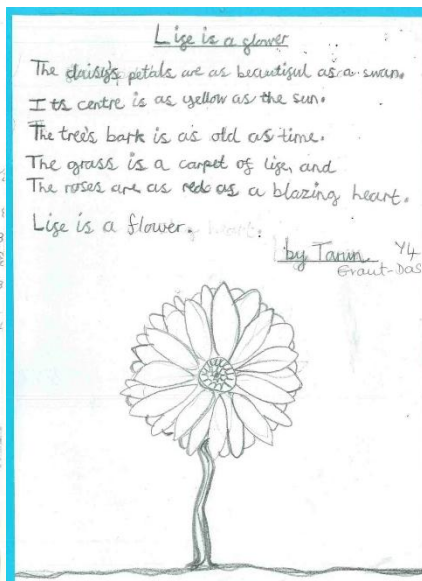 Life is a flower
The daisy's petals are as beautiful as a swan.
Its centre is as yellow as the sun.
The tree's bark is as old as time.
The grass is a carpet of life, and
The roses are as red as a blazing heart.
Life is a flower.
by Tanin Y4
Graut-Das